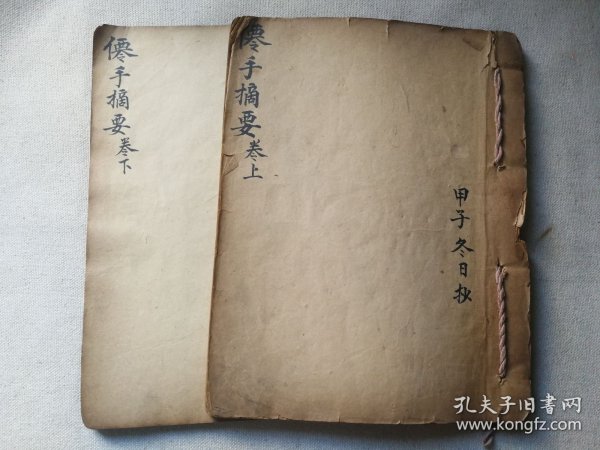 僊手摘要 卷上
甲子冬日抄
僊手摘要 卷下
孔夫子旧书网
www.kongfz.com